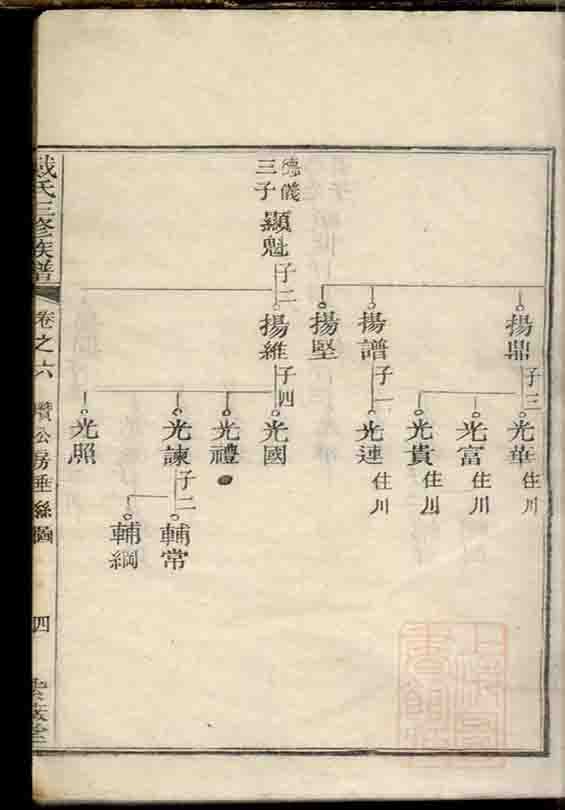 揚鼎
子三
光華
住川
光富
住川
光貴
住川
揚譜
子一
光連
住川
揚堅
德儀
三子
顯魁
子二
揚維
子四
光國
光禮
光諫
子二
輔常
輔綱
光照
戴氏三修族譜
卷之六
公房垂絲圖
四
上海圖書館藏